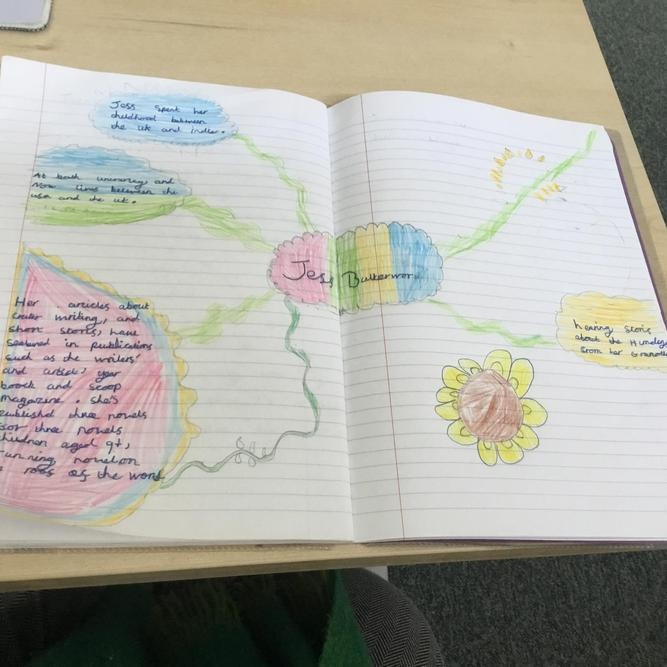 Jess spent her
childhood between
the uk and india.
At bath university and
Now lives between the
usa and the uk.
Jess Butterwor
hearing storis
about the Himalay
from her Grandmoth
Her articles about
writing, and
short storis, have
featured in publications
such as the writers'
and artist, year
boock and scoop
magazine. she's
published three novels
for three novels
children aged 9+,
running novel on
roof of the world